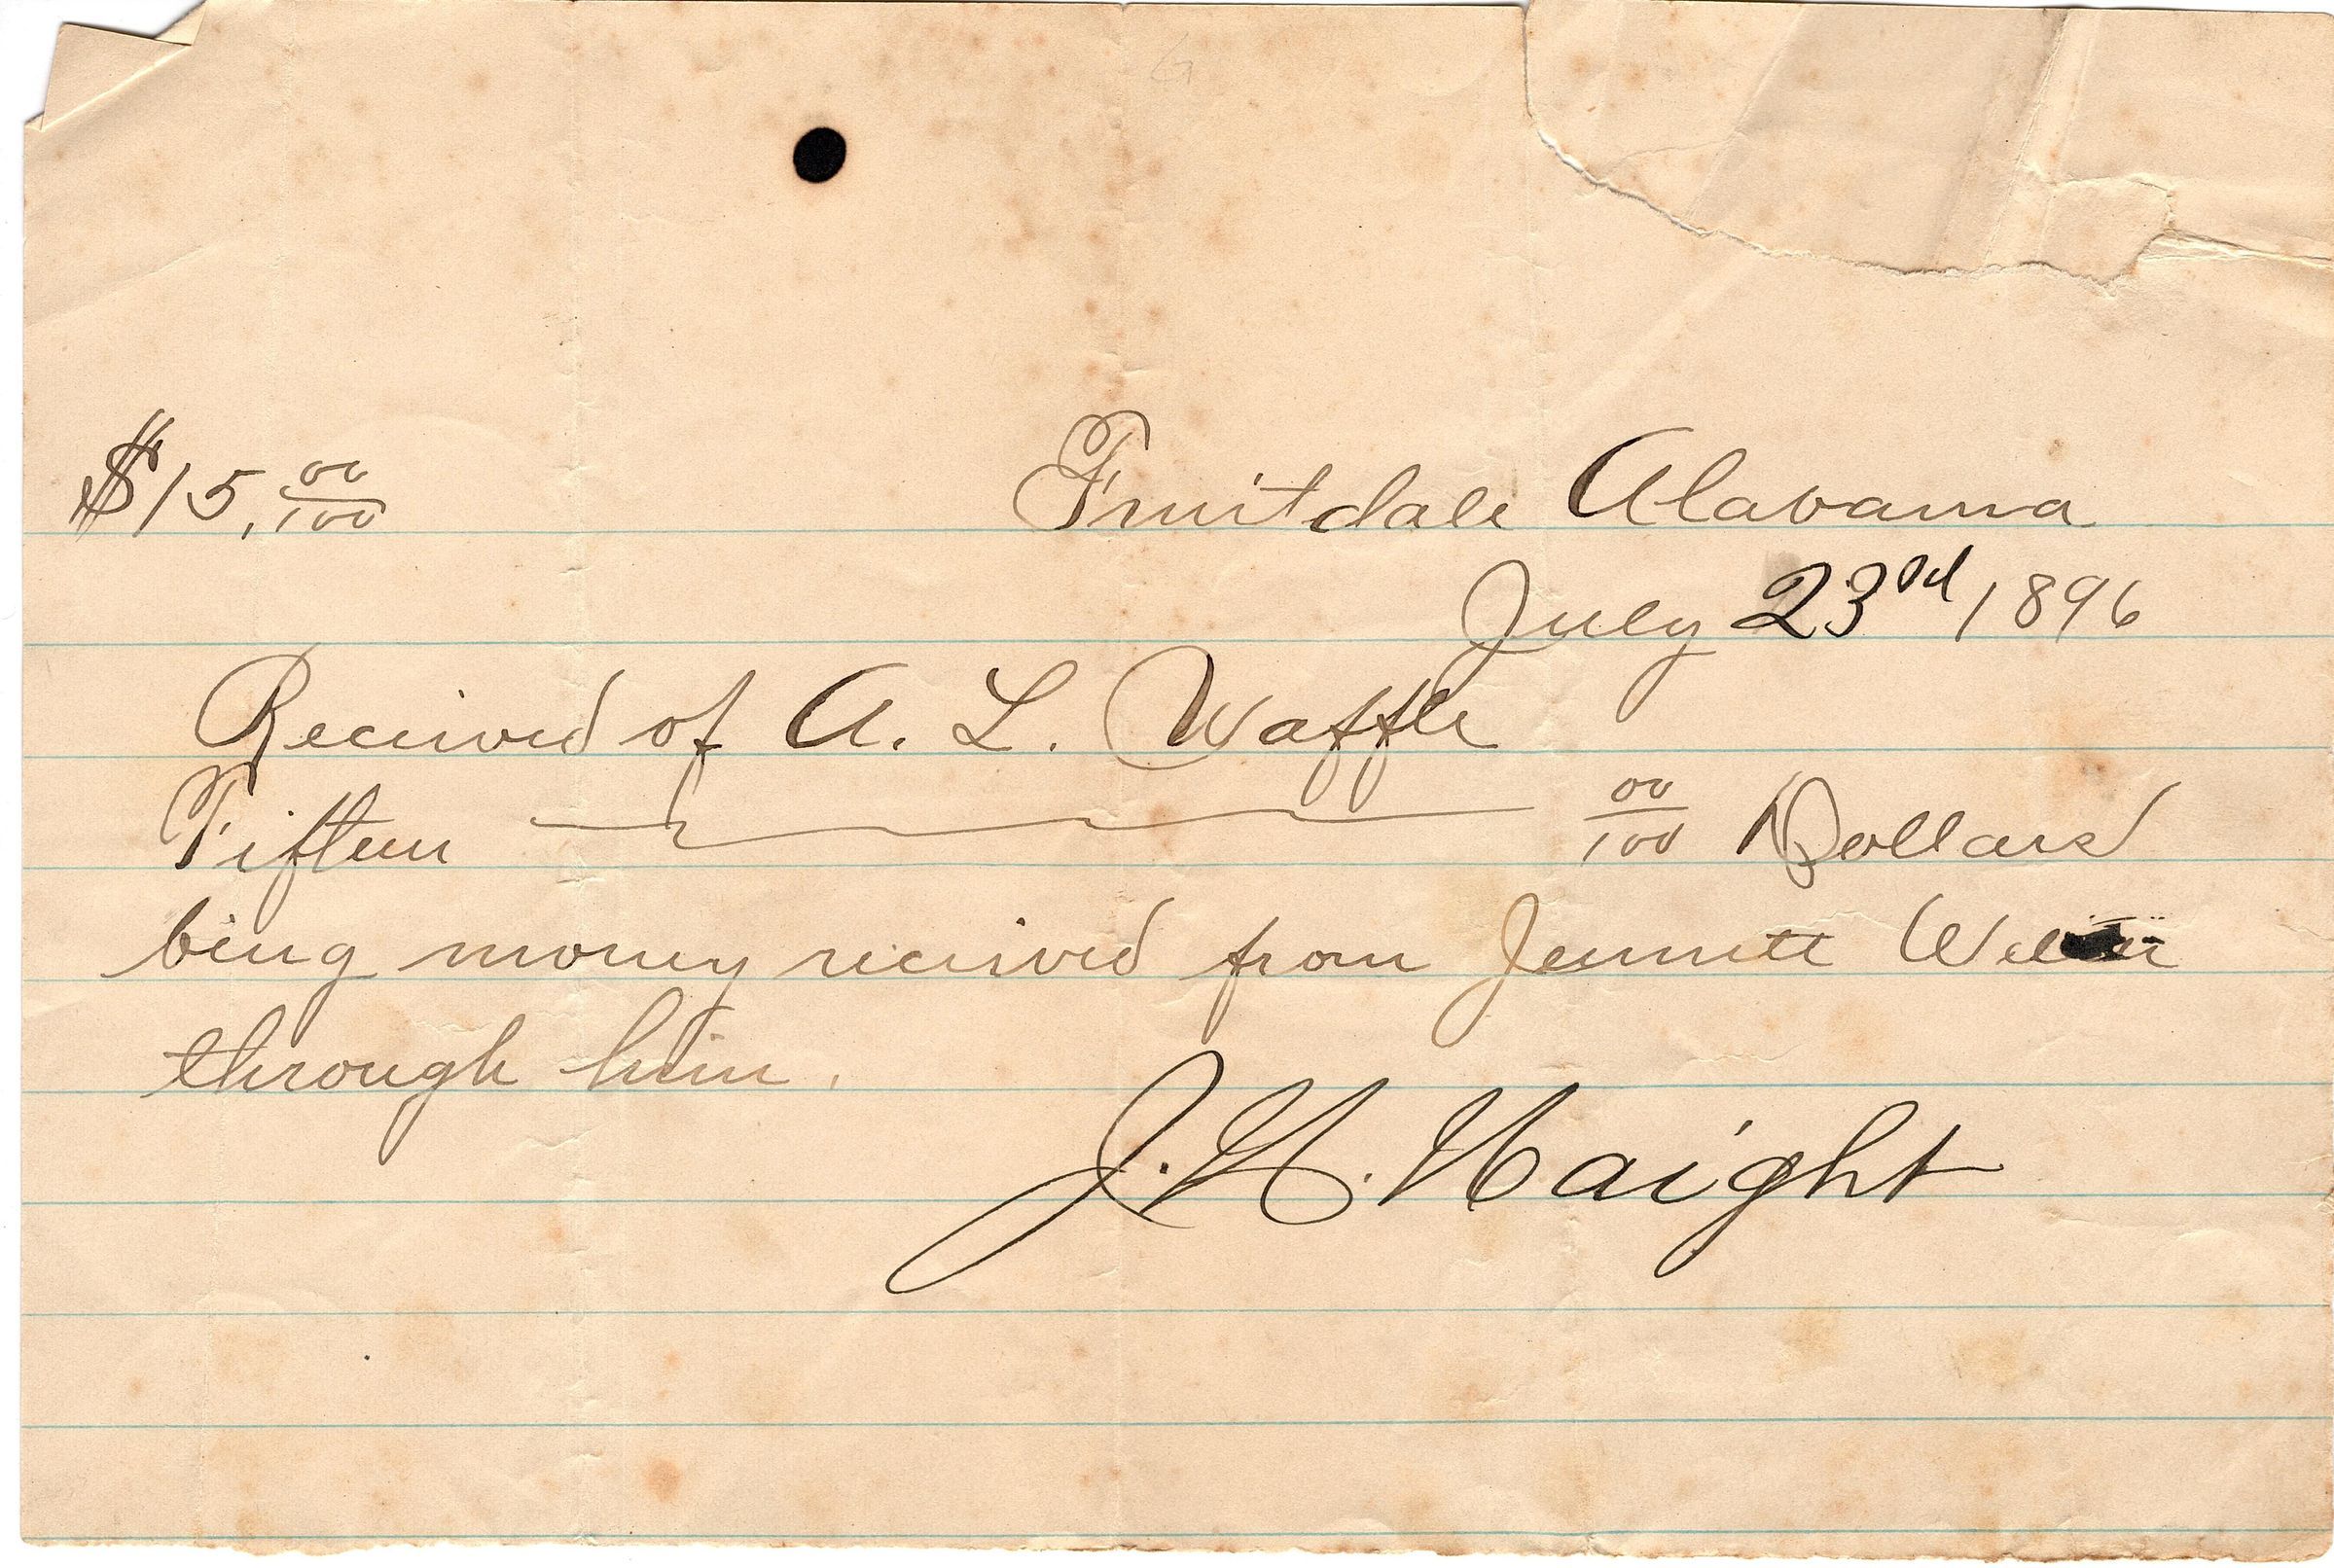 $15.00/100 Fruitdale Alabama
July 23rd 1896
Received of A. L. Waffle
Fifteen 00/100 Dollars
being money received from Jennett
through him.
J. H. Haight